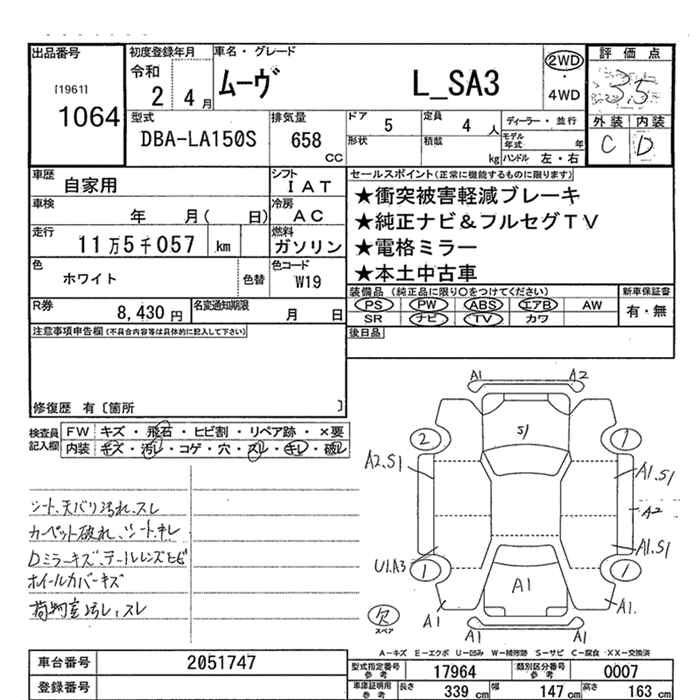 出品番号
[1961]
1064
初度登録年月
令和
2 4月
車名・グレード
ムーヴ L_SA3
2WD
・
4WD
評価点
3.5
外装 内装
C D
型式
DBA-LA150S
排気量
658
CC
ドア 5
定員 4 人
形状
積載 kg
ディーラー・並行
モデル年式 年
ハンドル 左・右
車歴 自家用
シフト IAT
車検 年 月( 日)
冷房 AC
走行 11万5千057 km
燃料 ガソリン
色 ホワイト
色替
色コード W19
R券 8,430 円
名変通知期限 月 日
セールスポイント(正常に機能するものに限ります)
★衝突被害軽減ブレーキ
★純正ナビ&フルセグTV
★電格ミラー
★本土中古車
装備品(純正品に限り〇をつけてください)
PS PW ABS エアB AW
SR ナビ TV カワ
新車保証書
有・無
後日品
注意事項申告欄(不具合内容等は具体的に記入して下さい)
修復歴 有〔箇所 〕
検査員記入欄
FW キズ・飛石・ヒビ割・リペア跡・×要
内装 キズ・汚レ・コゲ・穴・スレ・キレ・破レ
シート、天バリ汚れ、スレ
カーペット破れ、シートキレ
Dミラーキズ、テールレンズヒビ
ホイールカバーキズ
荷物室汚レ、スレ
A1 A2
S1
2 1
A2.S1 A1.S1
A2
A1.S1
U1.A3
1 1
A1
A1 A1.
A1 A1
欠
スペア
A-キズ E-エクボ U-凹み W-補修跡 S-サビ C-腐食 XX-交換済
車台番号 2051747
登録番号
型式指定番号
参考
17964
類別区分番号
参考
0007
車庫証明用
参考
長さ 339 cm 幅 147 cm 高さ 163 cm